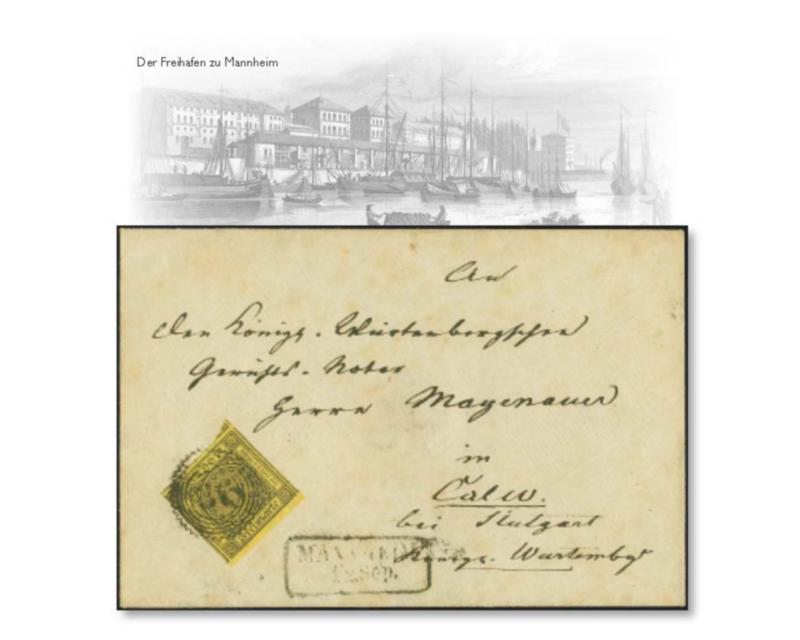 Der Freihafen zu Mannheim
An
den Königl. Württenbergschen
Gerichts-Notar
Herrn Mayenauer
in
Calw.
bei Stutgart
Königr. Würtembg
12. Sep.